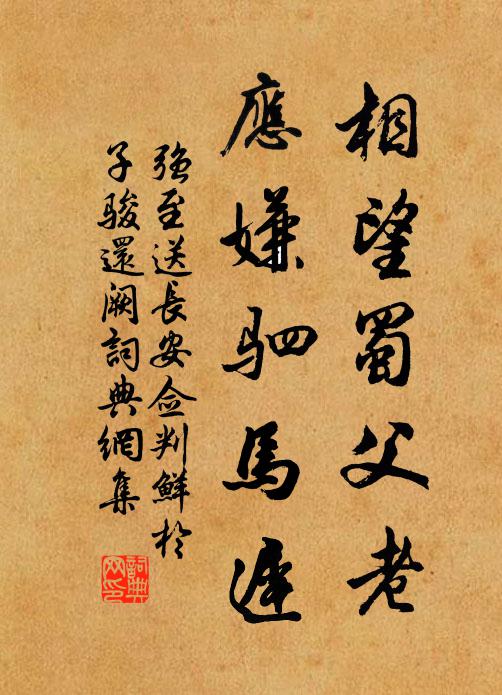 相望蜀父老
應嫌駟馬遲
強至送長安僉判鮮於
子駿還闕詞典網集
詞典网印